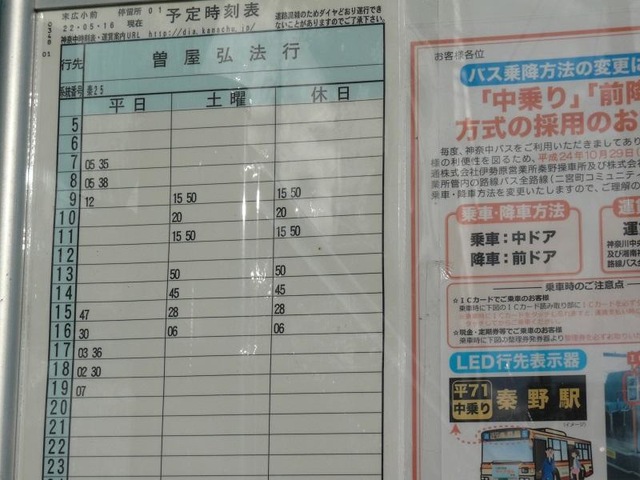 0348 01
末広小前 停留所 01
22-05-16 現在
神奈中時刻表・運賃案内URL http://dia.kanachu.jp/
予定時刻表
道路混雑のためダイヤどおり運行でき
ないことがありますのでご了承下さい。
行先 曽屋弘法行
系統番号 秦25
平日 土曜 休日
5
6
7 05 35
8 05 38
9 12 15 50 15 50
10 20 20
11 15 50 15 50
12
13 50 50
14 45 45
15 47 28 28
16 30 06 06
17 03 36
18 02 30
19 07
20
21
22
23
お客様各位
バス乗降方法の変更に
「中乗り」「前降
方式の採用のお
毎度、神奈中バスをご利用いただきましてあり
様の利便性を図るため、平成24年10月29日(
通株式会社伊勢原営業所秦野操車所及び株式会
業所管内の路線バス全路線(二宮町コミュニティ
乗車・降車方法を変更いたしますので、ご理解の
乗車・降車方法
乗車:中ドア
降車:前ドア
運賃
神奈川中央
及び湘南神
路線バス全
乗車時のご注意点
☆ICカードでご乗車のお客様
乗車時に下図のICカード読み取り部にICカードを
☆現金・定期券等でご乗車のお客様
乗車時に下図の整理券発券器より整理券を
LED行先表示器
平71
中乗り 秦野駅
(イメージ)